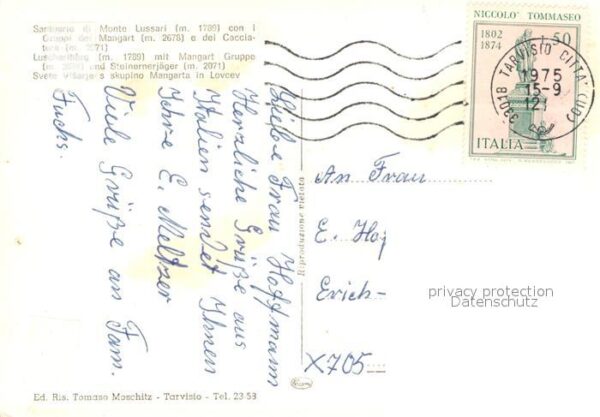 Santuario di Monte Lussari (m. 1789) con i
Gruppi del Mangart (m. 2678) e del Caccia-
tore (m. 2071)
Luschariberg (m. 1789) mit Mangart Gruppe
(m. 2678) und Steinernerjäger (m. 2071)
Svete Višarje s skupino Mangarta in Lovcev
Liebe Frau Hoffmann
Herzliche Grüße aus
Italien sendet Ihnen
Ihre E. Meltzer
Viele Grüße an Fam.
Fuchs.
Ed. Ris. Tomaso Moschitz - Tarvisio - Tel. 23-58
Riproduzione vietata
NICCOLO' TOMMASEO
1802
1874
50
ITALIA
33018 TARVISIO CITTA' (UD)
1975
15-9
12
An Frau
E. Hof
Erich-
X705
privacy protection
Datenschutz